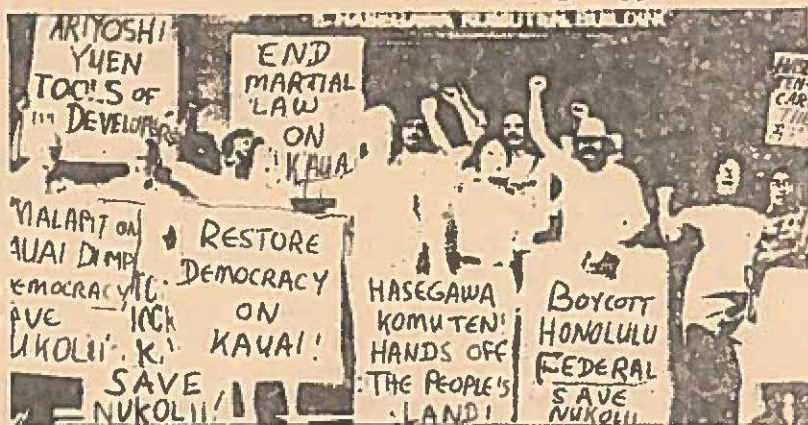 HASEGAWA KOMUTEN BUILDING
ARIYOSHI
YUEN
TOOLS OF
DEVELOPERS
END
MARTIAL
LAW
ON
KAUAI
MALAPIT ON
KAUAI DUMP
DEMOCRACY
SAVE
NUKOLII
RESTORE
DEMOCRACY
ON
KAUAI!
SAVE
NUKOLII!
HASEGAWA
KOMUTEN!
HANDS OFF
THE PEOPLE'S
LAND!
BOYCOTT
HONOLULU
FEDERAL
SAVE
NUKOLII